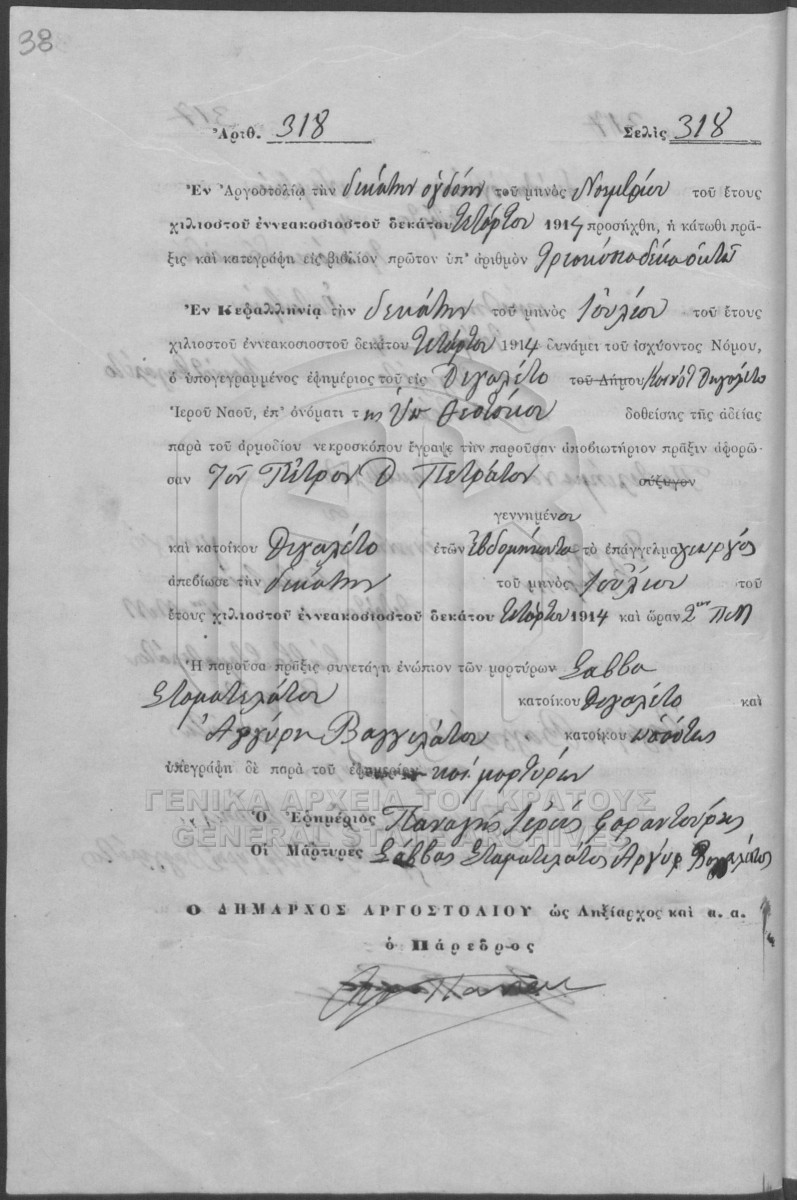 38
Ἀριθ. 318 Σελὶς 318
Ἐν Ἀργοστολίῳ τὴν δεκάτην ὀγδόην τοῦ μηνὸς Νοεμβρίου τοῦ ἔτους
χιλιοστοῦ ἐννεακοσιοστοῦ δεκάτου τετάρτου 1914 προσήχθη, ἡ κάτωθι πρᾶ-
ξις καὶ κατεγράφη εἰς βιβλίον πρῶτον ὑπ' ἀριθμὸν τριακόσια δέκα ὀκτὼ
Ἐν Κεφαλληνίᾳ τὴν δεκάτην τοῦ μηνὸς Ἰουλίου τοῦ ἔτους
χιλιοστοῦ ἐννεακοσιοστοῦ δεκάτου τετάρτου 1914 δυνάμει τοῦ ἰσχύοντος Νόμου,
ὁ ὑπογεγραμμένος ἐφημέριος τοῦ εἰς Διγαλέτο τοῦ Δήμου Κοινότ Διγαλέτο
Ἱεροῦ Ναοῦ, ἐπ' ὀνόματι τ ης Ὑπ Θεοτόκου δοθείσης τῆς ἀδείας
παρὰ τοῦ ἁρμοδίου νεκροσκόπου ἔγραψε τὴν παροῦσαν ἀποβιωτήριον πρᾶξιν ἀφορῶ-
σαν Τὸν Πέτρον Δ Πετράτον σύζυγον
γεννημένου
καὶ κατοίκου Διγαλέτο ἐτῶν ἑβδομήκοντα τὸ ἐπάγγελμα γεωργός
ἀπεβίωσε τὴν δεκάτην τοῦ μηνὸς Ἰουλίου τοῦ
ἔτους χιλιοστοῦ ἐννεακοσιοστοῦ δεκάτου τετάρτου 1914 καὶ ὥραν 2αν Π Μ
Ἡ παροῦσα πρᾶξις συνετάγη ἐνώπιον τῶν μαρτύρων Σάββα
Σταματελάτου κατοίκου Διγαλέτο καὶ
Ἀργύρη Βαγγελάτου κατοίκου ὡσαύτως
ὑπεγράφη δὲ παρὰ τοῦ ἐφημερίου καὶ μαρτύρων
ΓΕΝΙΚΑ ΑΡΧΕΙΑ ΤΟΥ ΚΡΑΤΟΥΣ
Ὁ Ἐφημέριος Παναγῆς Ἱερεὺς Φαραντούρης
GENERAL STATE ARCHIVES
Οἱ Μάρτυρες Σάββας Σταματελάτος Ἀργύρ Βαγγελάτος
Ο ΔΗΜΑΡΧΟΣ ΑΡΓΟΣΤΟΛΙΟΥ ὡς Ληξίαρχος καὶ α. α.
ὁ Πάρεδρος